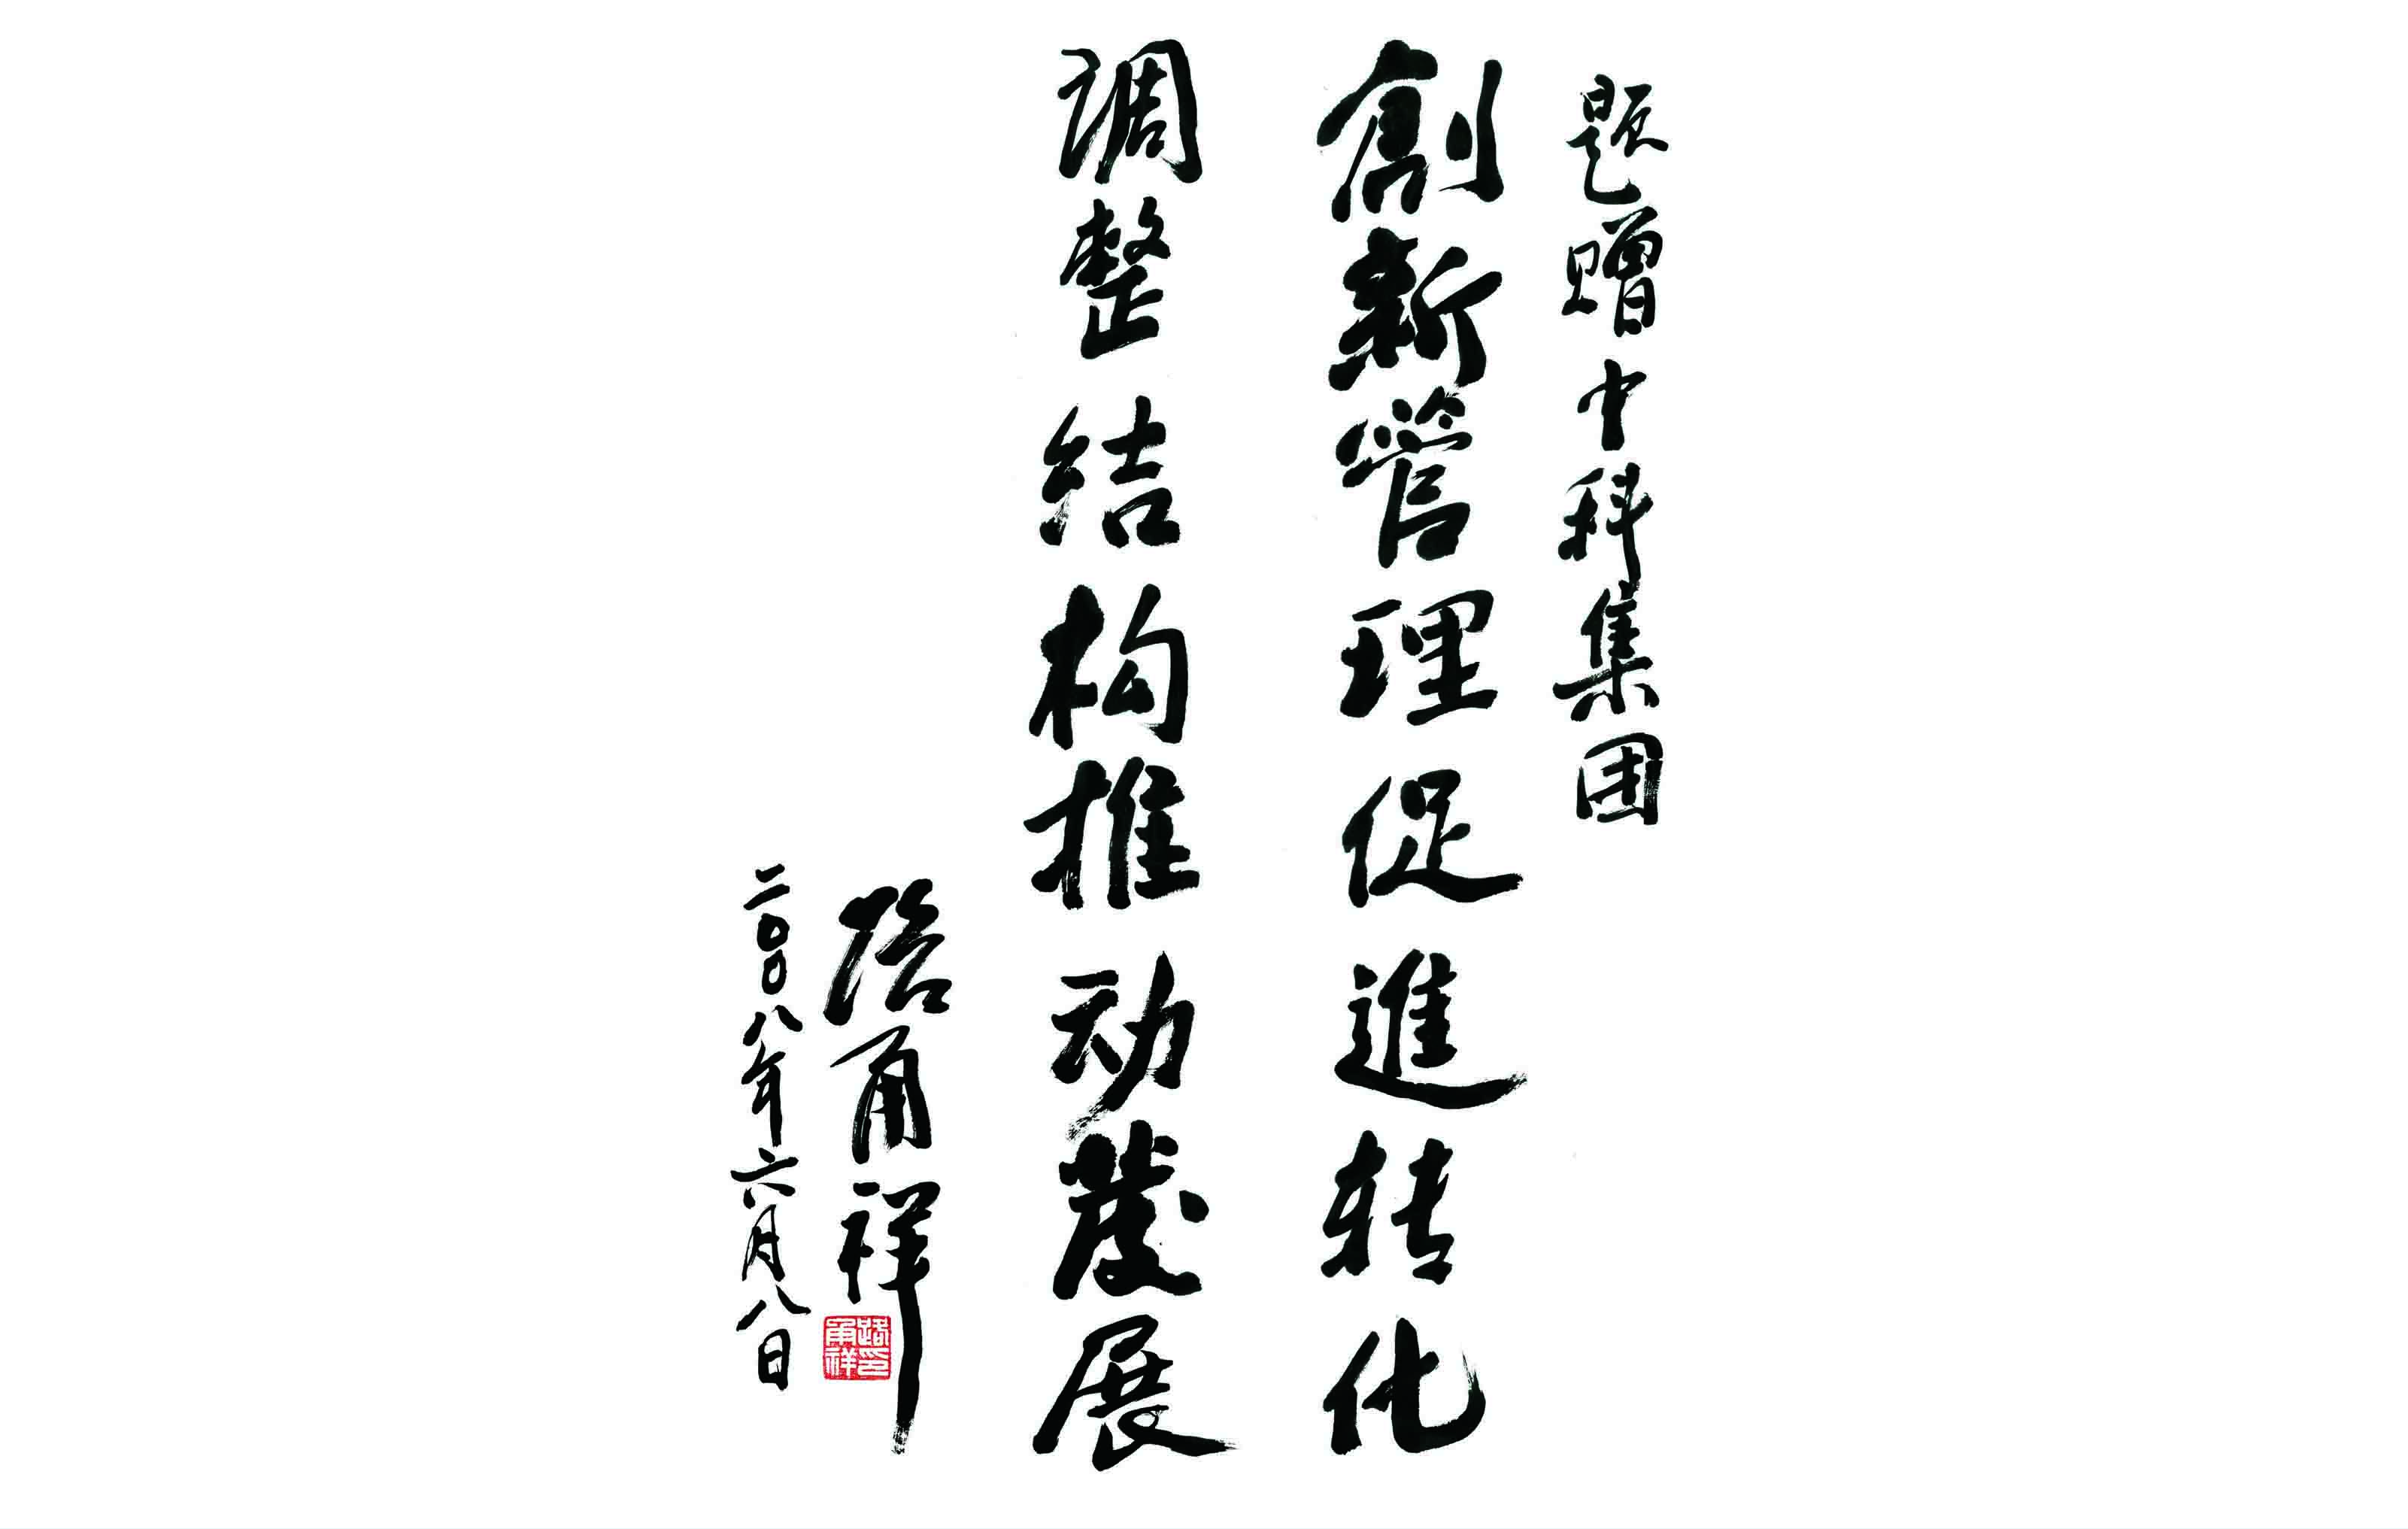 题赠中科集团
創新管理促進转化
调整结构推动發展
路甬祥
二〇〇八年六月八日
路甬祥印